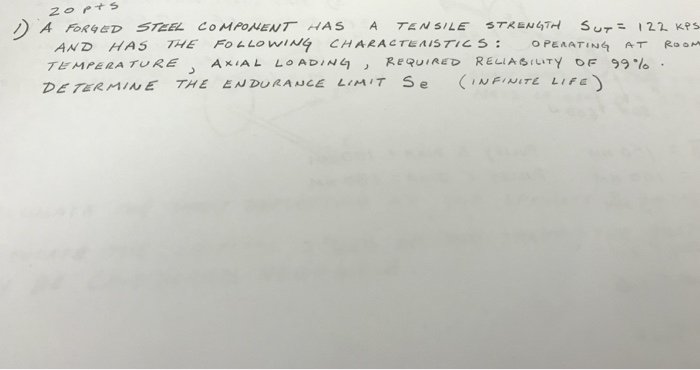 20 pts
1) A FORGED STEEL COMPONENT HAS A TENSILE STRENGTH SUT = 122 KPS
AND HAS THE FOLLOWING CHARACTERISTICS: OPERATING AT ROOM
TEMPERATURE, AXIAL LOADING, REQUIRED RELIABILITY OF 99%.
DETERMINE THE ENDURANCE LIMIT Se (INFINITE LIFE)